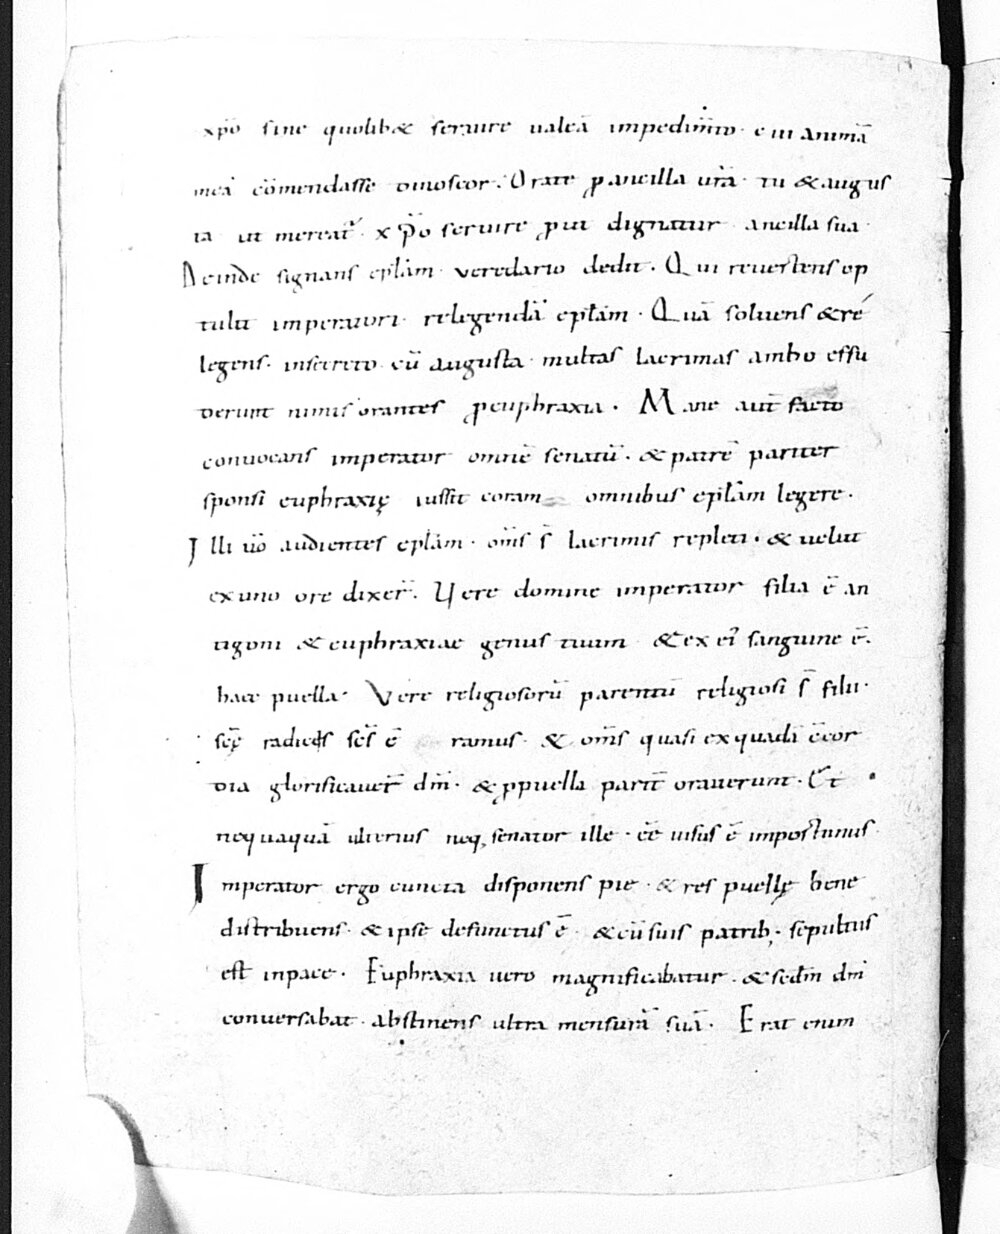 xp̄o sine quolib& seruire ualeā impedim̄to · cui animā
meā cōmendasse dinoscor. Orate p ancilla ur̄a · tu & augus
ta ut mereat᷑ · xp̄o seruire put dignatur ancilla sua ·
Deinde signans epl̄am · veredario dedit · Qui reuertens op
tulit imperatori · relegendā epl̄am · Quā soluens & re
legens · insecreto cū augusta · multas lacrimas ambo effu
derunt nimis orantes p euphraxia · Mane aut̄ facto
convocans imperator omnē senatū · & patrē pariter
sponsi euphraxię iussit coram omnibus epl̄am legere ·
Illi ūo audientes epl̄am · om̄s s̄ lacrimis repleti · & uelut
ex uno ore dixer̄ · Vere domine imperator filia ē an
tigoni & euphraxiae genus tuum · & ex ei᾽ sanguine ē ·
haec puella · Vere religiosorū parentū religiosi s̄ filii ·
sc̄ę radicis sc̄s ē ramus · & om̄s quasi ex quadā c̄cor
dia glorificauer̄ dn̄m · & p puella parit̄ orauerunt · Et
nequaquā ulterius neq, senator ille · ēē uisus ē importunus ·
Imperator ergo cuncta disponens pie · & res puellę bene
distribuens · & ipse defunctus ē · & cū suis patrib, · sepultus
est inpace · Euphraxia uero magnificabatur · & sedm̄ dm̄
conversabat · abstinens ultra mensurā suā · Erat enim